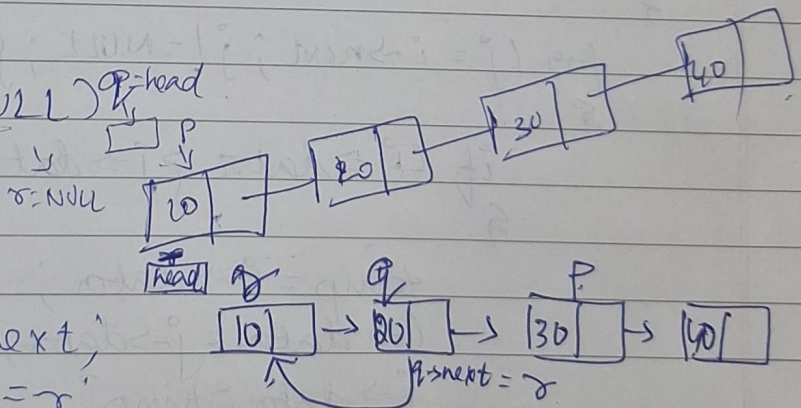 ULL) q=head
P
r=NULL
10 20 30 40
head
r q P
ext;
10 → 20 → 30 → 40
q→next = r
= r;